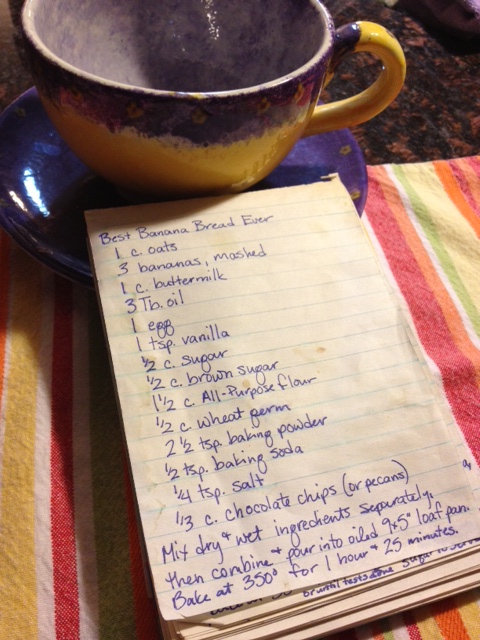 Best Banana Bread Ever
1 c. oats
3 bananas, mashed
1 c. buttermilk
3 Tb. oil
1 egg
1 tsp. vanilla
1/2 c. sugar
1/2 c. brown sugar
1 1/2 c. All-Purpose flour
1/2 c. wheat germ
2 1/2 tsp. baking powder
1/2 tsp. baking soda
1/4 tsp. salt
1/3 c. chocolate chips (or pecans)
Mix dry & wet ingredients separately,
then combine & pour into oiled 9x5" loaf pan.
Bake at 350° for 1 hour & 25 minutes.
or until tests done